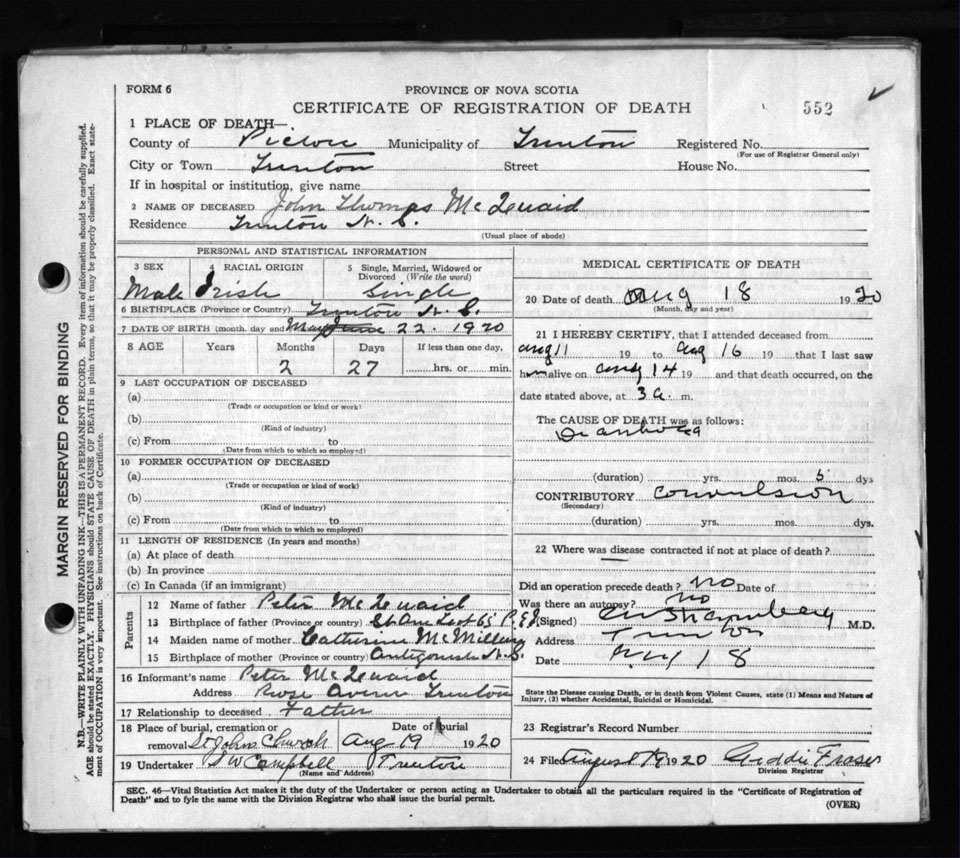 FORM 6
PROVINCE OF NOVA SCOTIA
CERTIFICATE OF REGISTRATION OF DEATH
552
1 PLACE OF DEATH—
County of Pictou Municipality of Trenton Registered No.
(For use of Registrar General only)
City or Town Trenton Street House No.
If in hospital or institution, give name
2 NAME OF DECEASED John Thomas McQuaid
Residence Trenton N. S.
(Usual place of abode)
PERSONAL AND STATISTICAL INFORMATION
3 SEX 4 RACIAL ORIGIN 5 Single, Married, Widowed or Divorced (Write the word)
Male Irish Single
6 BIRTHPLACE (Province or Country) Trenton N. S.
7 DATE OF BIRTH (month, day and May 22. 1920
8 AGE Years Months Days If less than one day,
2 27 hrs. or min.
9 LAST OCCUPATION OF DECEASED
(a)
(Trade or occupation or kind or work)
(b)
(Kind of industry)
(c) From to
(Date from which to which so employed)
10 FORMER OCCUPATION OF DECEASED
(a)
(Trade or occupation or kind of work)
(b)
(Kind of industry)
(c) From to
(Date from which to which so employed)
11 LENGTH OF RESIDENCE (In years and months)
(a) At place of death
(b) In province
(c) In Canada (if an immigrant)
Parents
12 Name of father Peter McQuaid
13 Birthplace of father (Province or country) P.E.I.
14 Maiden name of mother Catherine McMillan
15 Birthplace of mother (Province or country) Antigonish N.S.
16 Informant's name Peter McQuaid
Address Avenue Trenton
17 Relationship to deceased Father
18 Place of burial, cremation or removal St Johns Church Date of burial Aug 19 1920
19 Undertaker J W Campbell Trenton
(Name and Address)
MEDICAL CERTIFICATE OF DEATH
20 Date of death Aug 18 1920
(Month, day and year)
21 I HEREBY CERTIFY, that I attended deceased from
Aug 11 19 to Aug 16 19 that I last saw
h alive on Aug 14 19 and that death occurred, on the
date stated above, at 3 a. m.
The CAUSE OF DEATH was as follows:
Diarrhoea
(duration) yrs. mos. 5 dys
CONTRIBUTORY convulsion
(Secondary)
(duration) yrs. mos. dys.
22 Where was disease contracted if not at place of death?
Did an operation precede death? no Date of
Was there an autopsy? no
(Signed) M.D.
Address Trenton
Date Aug 18
State the Disease causing Death, or in death from Violent Causes, state (1) Means and Nature of
Injury, (2) whether Accidental, Suicidal or Homicidal.
23 Registrar's Record Number
24 Filed August 19 1920 Geddie Fraser
Division Registrar
SEC. 46—Vital Statistics Act makes it the duty of the Undertaker or person acting as Undertaker to obtain all the particulars required in the "Certificate of Registration of
Death" and to fyle the same with the Division Registrar who shall issue the burial permit.
(OVER)
MARGIN RESERVED FOR BINDING
N.B.—WRITE PLAINLY WITH UNFADING INK—THIS IS A PERMANENT RECORD. Every item of information should be carefully supplied.
AGE should be stated EXACTLY. PHYSICIANS should STATE CAUSE OF DEATH in plain terms, so that it may be properly classified. Exact state-
ment of OCCUPATION is very important. See instructions on back of Certificate.